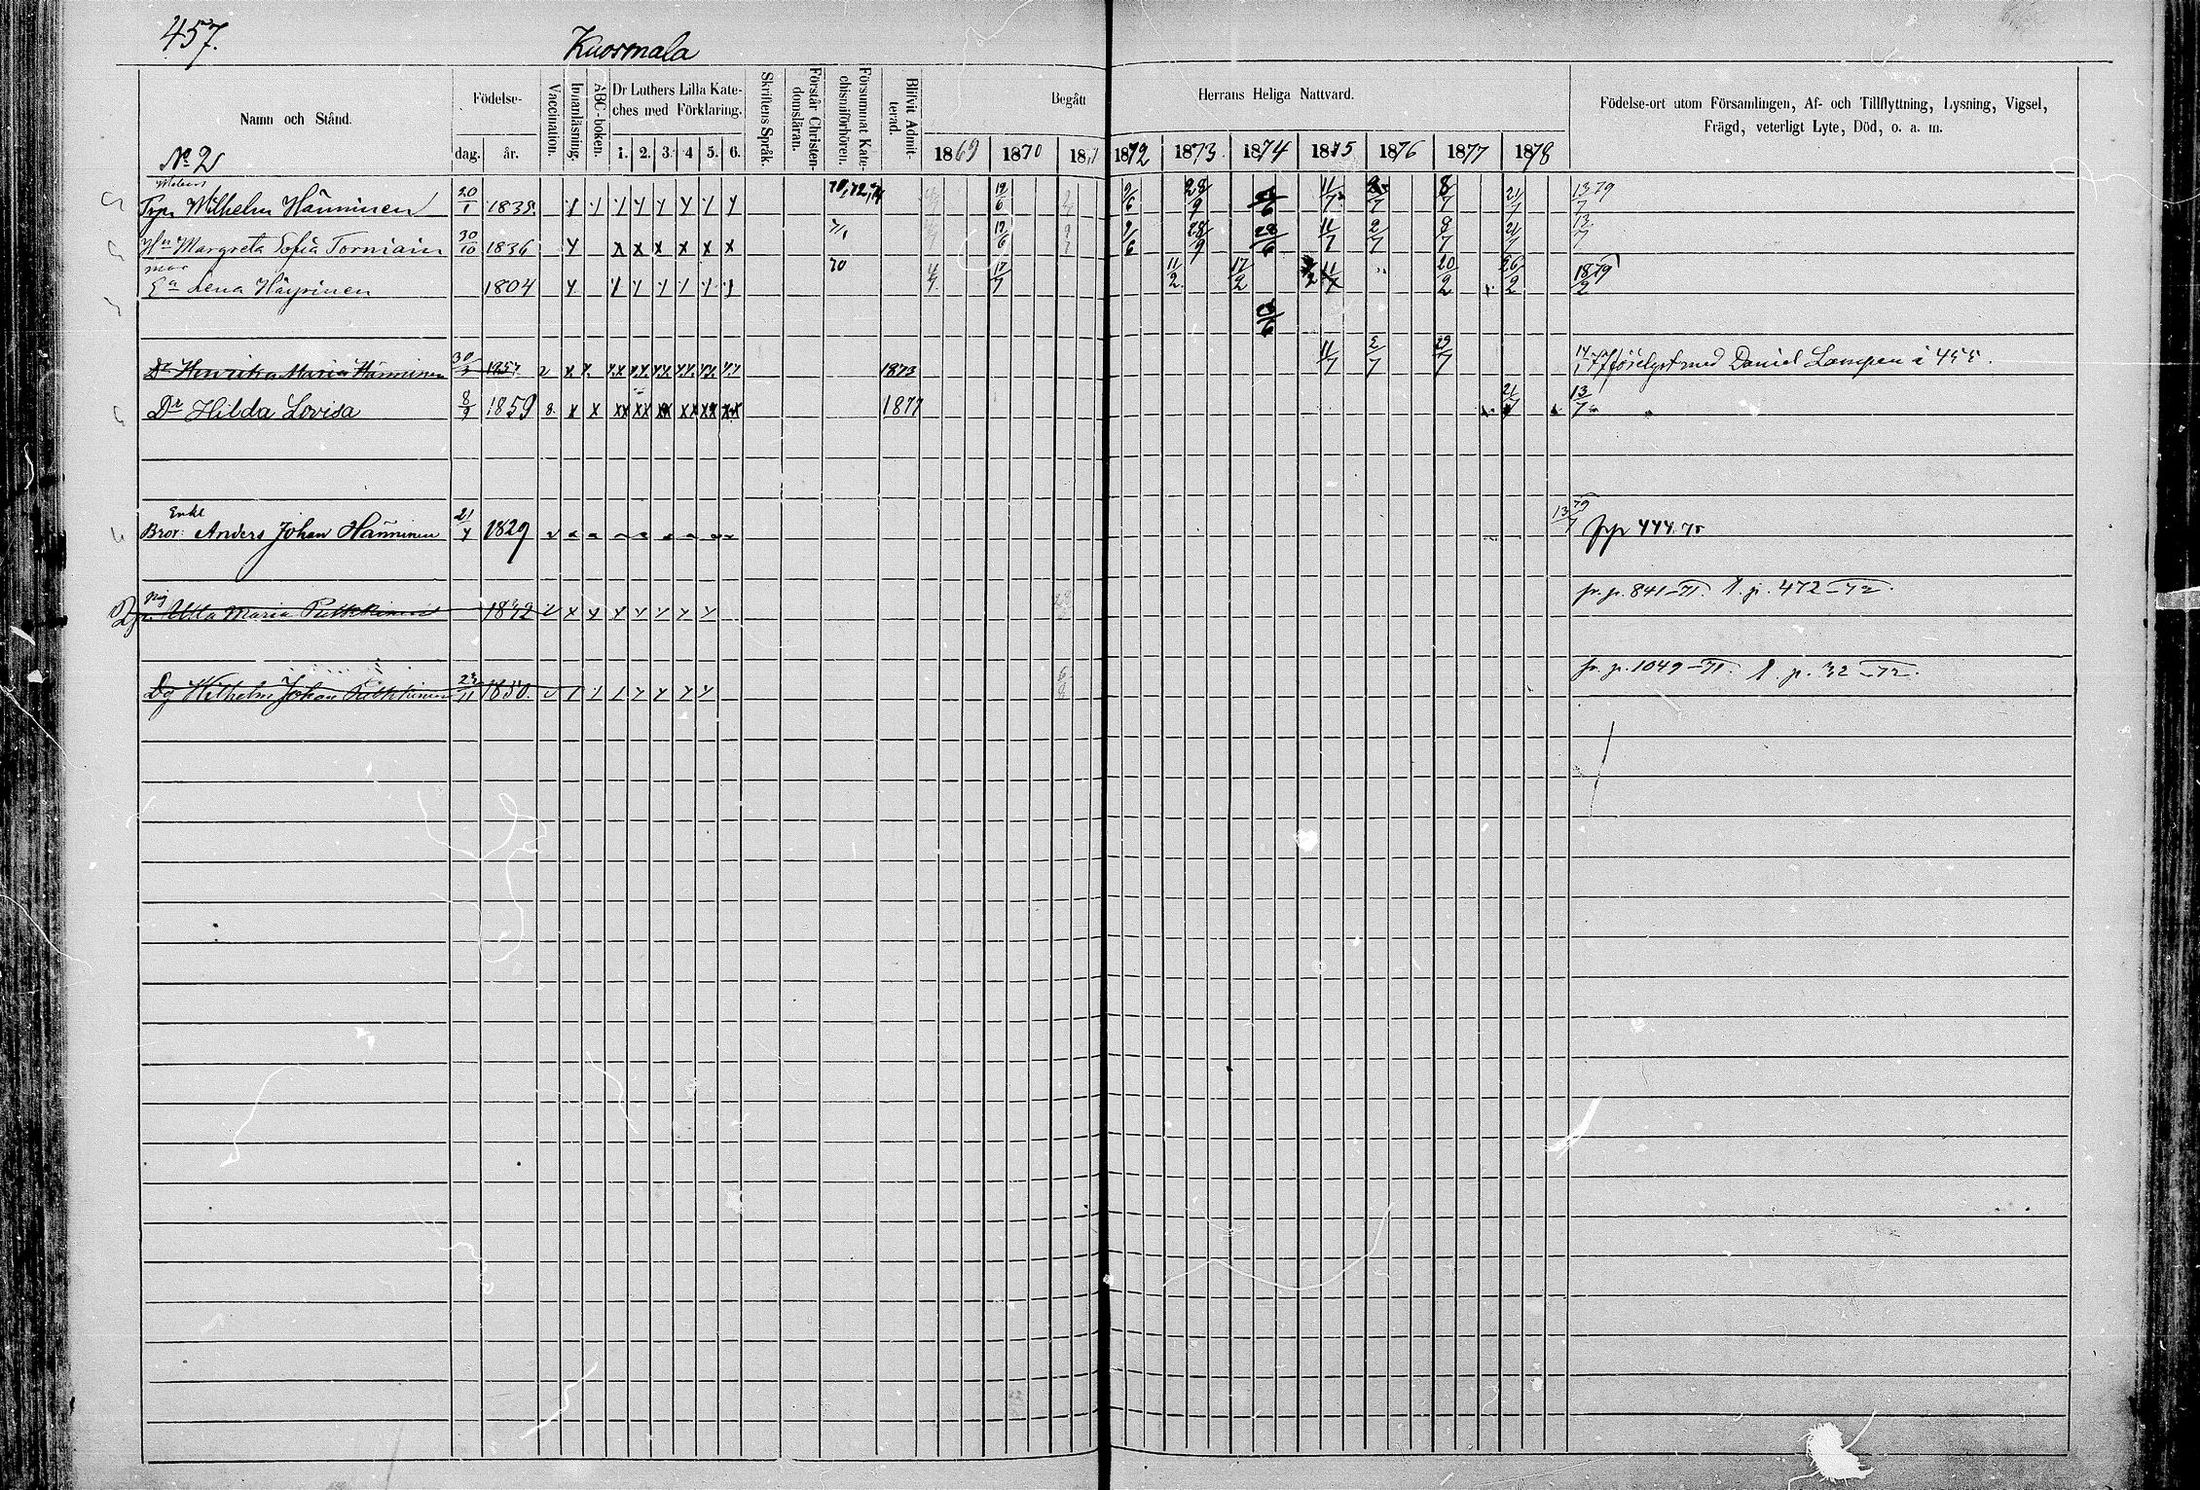 457.
Kuosmala
Namn och Stånd.
Födelse-
dag.
år.
Vaccination.
Innanläsning.
ABC-boken.
Dr Luthers Lilla Kate-
ches med Förklaring.
1. 2. 3. 4 5. 6.
Skriftens Språk.
Förstår Christen-
domsläran.
Försummat Kate-
chismiförhören.
Blifvit Admit-
terad.
Begått
Herrans Heliga Nattvard.
1869 1870 1872 1873 1874 1875 1876 1877 1878
Födelse-ort utom Församlingen, Af- och Tillflyttning, Lysning, Vigsel,
Frägd, veterligt Lyte, Död, o. a. m.
No 2
Wilhelm Hänninen 20/1 1835 12/6 9/6 28/9 11/7 8/7 21/7 13/7 79
Hu Margreta Sofia Torniain 30/10 1836 12/6 9/6 28/9 28/6 11/7 2/7 8/7 21/7 13/7
mor
Ea Lena Häyrinen 1804 70 17/7 11/2 17/2 20/2 26/2 1879
Dr Henrika Maria Hänninen 30/3 1857 1873 11/7 2/7 29/7 med Daniel Lampen å 455.
Dr Hilda Lovisa 8/9 1859 1877 21/7 13/7
Enkl
Bror: Anders Johan Hänninen 21/4 1829 13/7 79 444.75
Ulla Maria Pulkkinen 1842 fr. p. 841-71. p. 472-72.
Dg Wilhelm Johan Pulkkinen 1850. fr. p. 1049-71. p. 32-72.